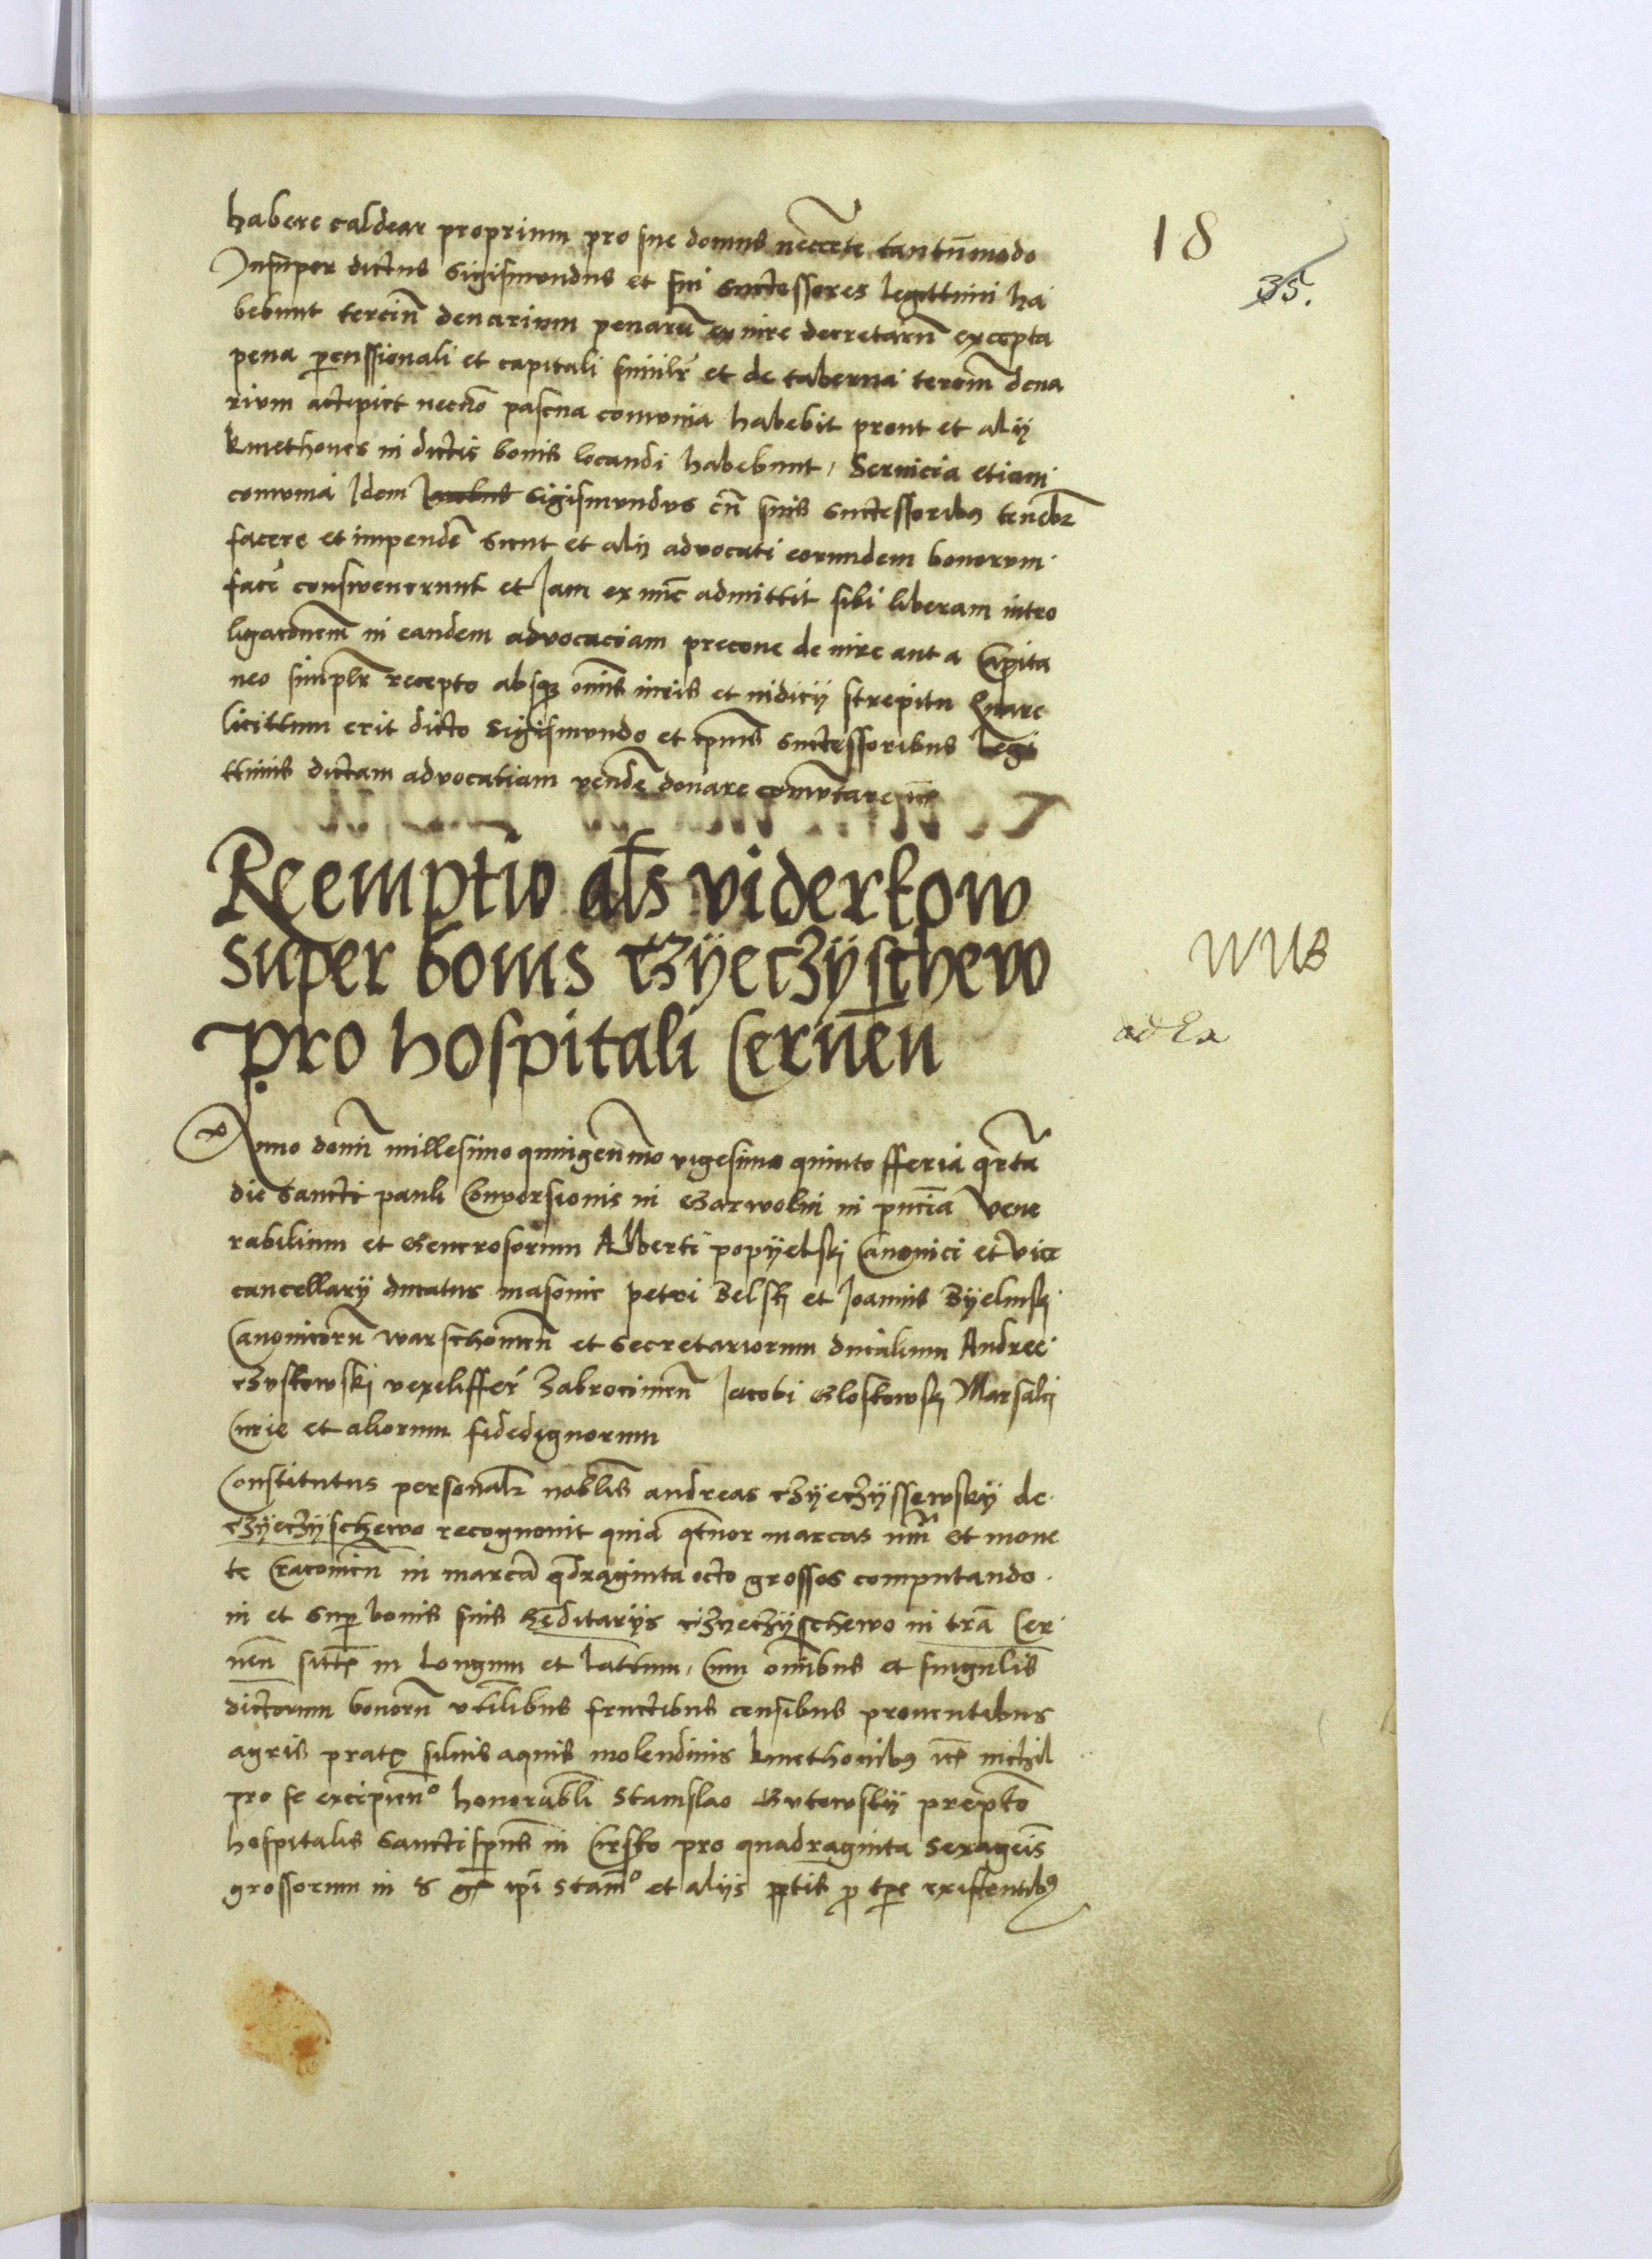 habere caldear proprium pro sue domus neccēte tantūmodo
Insuper dictus Sigismundus et sui successores legittimi ha
bebunt terciū denarium penarū ex iure decretarū excepta
pena percussionali et capitali similr̄ et de taberna terciū dena
rium accipiet necnō pascua comunia habebit prout et alij
kmethones in dictis bonis locandi habebunt, Servicia etiam
comunia Idem Jacobus Sigismundus cū suis successoribus tenebr̄
facere et impendē sicut et alij advocati eorundem bonorum
facē consweverunt et Jam ex nūc admittit sibi liberam intro
ligacōnem in eandem advocaciam precone de iure aut a Capita
neo simplr̄ recepto absq3 omīs iuris et iudicij strepitu Quare
licittum erit dicto Sigismundo et ipius successoribus legi
ttimis dictam advocatiam vendē donare comutare etc
Reemptio als viderkow
super bonis Czyeczyschewo
pro hospitali Cernen̄
Anno domī millesimo quingentēmo vigesimo quinto fferia qrta
die sancti pauli Conversionis in Garwolin in pn̄cia Vene
rabilium et Generosorum Alberti popyelski Canonici et Vice
cancellarij ducatus masovie petri Belsk et Joannis Byelinsk
Canonicorū warschovien̄ et secretariorum ducalium Andree
Czystowski vexelifferi Zakroczimen̄ Jacobi Gloskowsk Marsalci
Curie et aliorum fidedignorum
Constitutus personalr̄ nobīlis andreas Czyeczyssewsky de
Czyeczyschewo recognovit quia qtuor marcas nūi et mone
te Cracovien̄ in marca qdraginta octo grossos computando
in et supr bonis suis hereditarijs Czyeczyschewo in tra Cer
nen̄ sitt in longum et lattum, Cum omībus et singulis
dictorum bonorū utilibus fructibus censibus proventibus
agris prat silvis aquis molendinis kmethonibus etc nichil
pro se excipien° honorabli Stanislao Gutowsky prepto
hospitalis sancti spūs in Cirsko pro quadraginta sexageis
grossorum in 8 g ipī Stan° et alijs pptis p tpe existentibus
18
35.
WUB